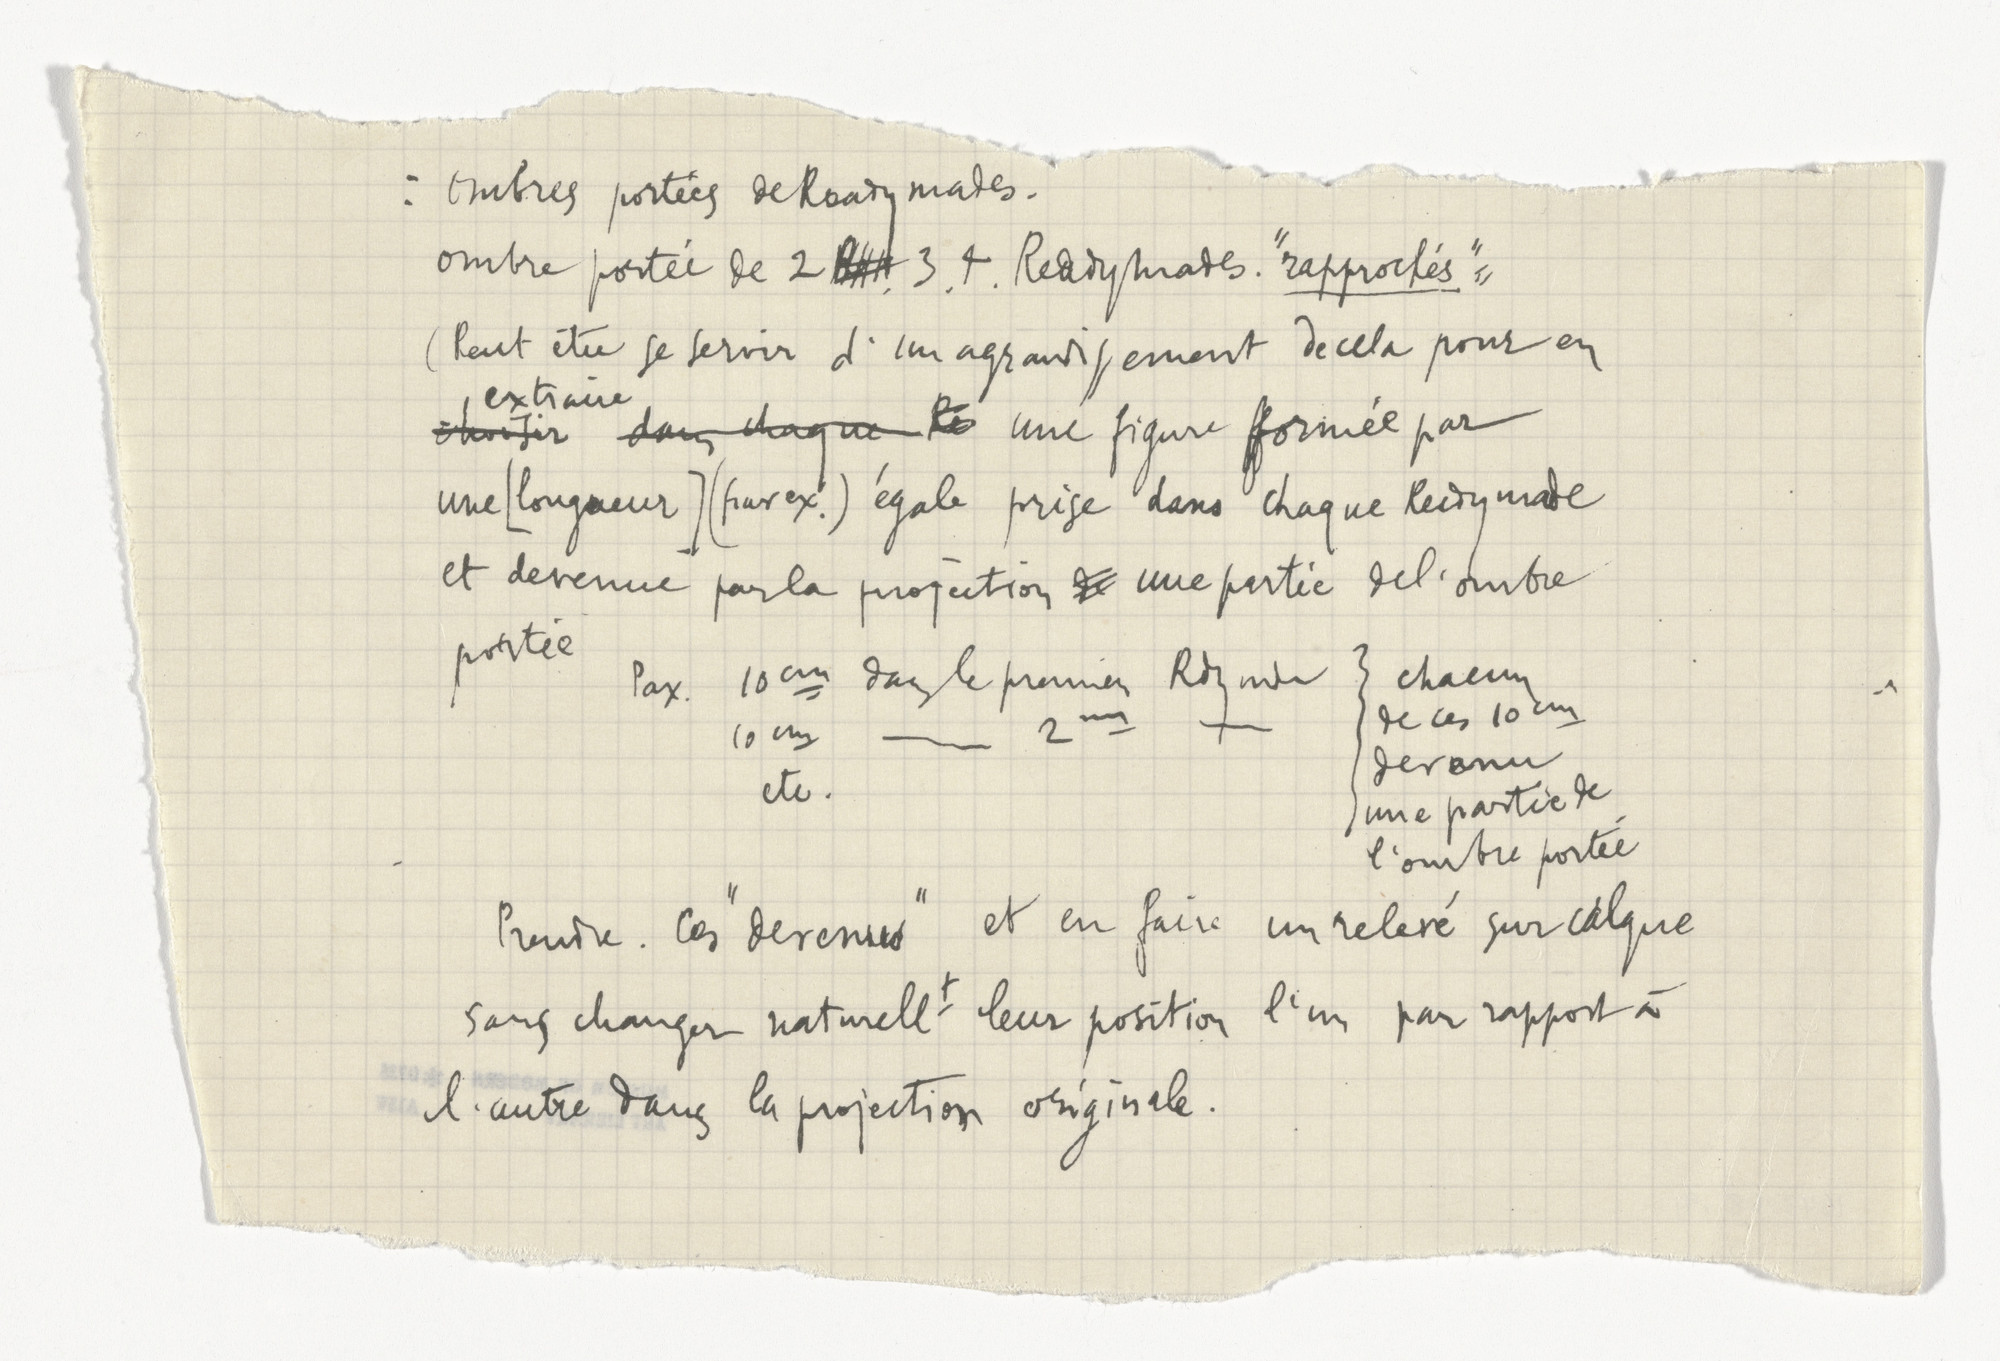 : Ombres portées de Readymades.
ombre portée de 2 3, 4. Readymades. "rapprochés"=
(Peut être se servir d'un agrandissement de cela pour en
extraire
choisir dans chaque Re une figure formée par
une [longueur] (par ex.) égale prise dans chaque Readymade
et devenue par la projection de une partie de l'ombre
portée
Par ex. 10 cm dans le premier Rdymde } chacun
10 cm — 2me — de ces 10 cm
devenu
etc.
une partie de
l'ombre portée
Prendre. Ces "devenus" et en faire un relevé sur calque
sans changer naturellt leur position l'un par rapport à
l'autre dans la projection originale.